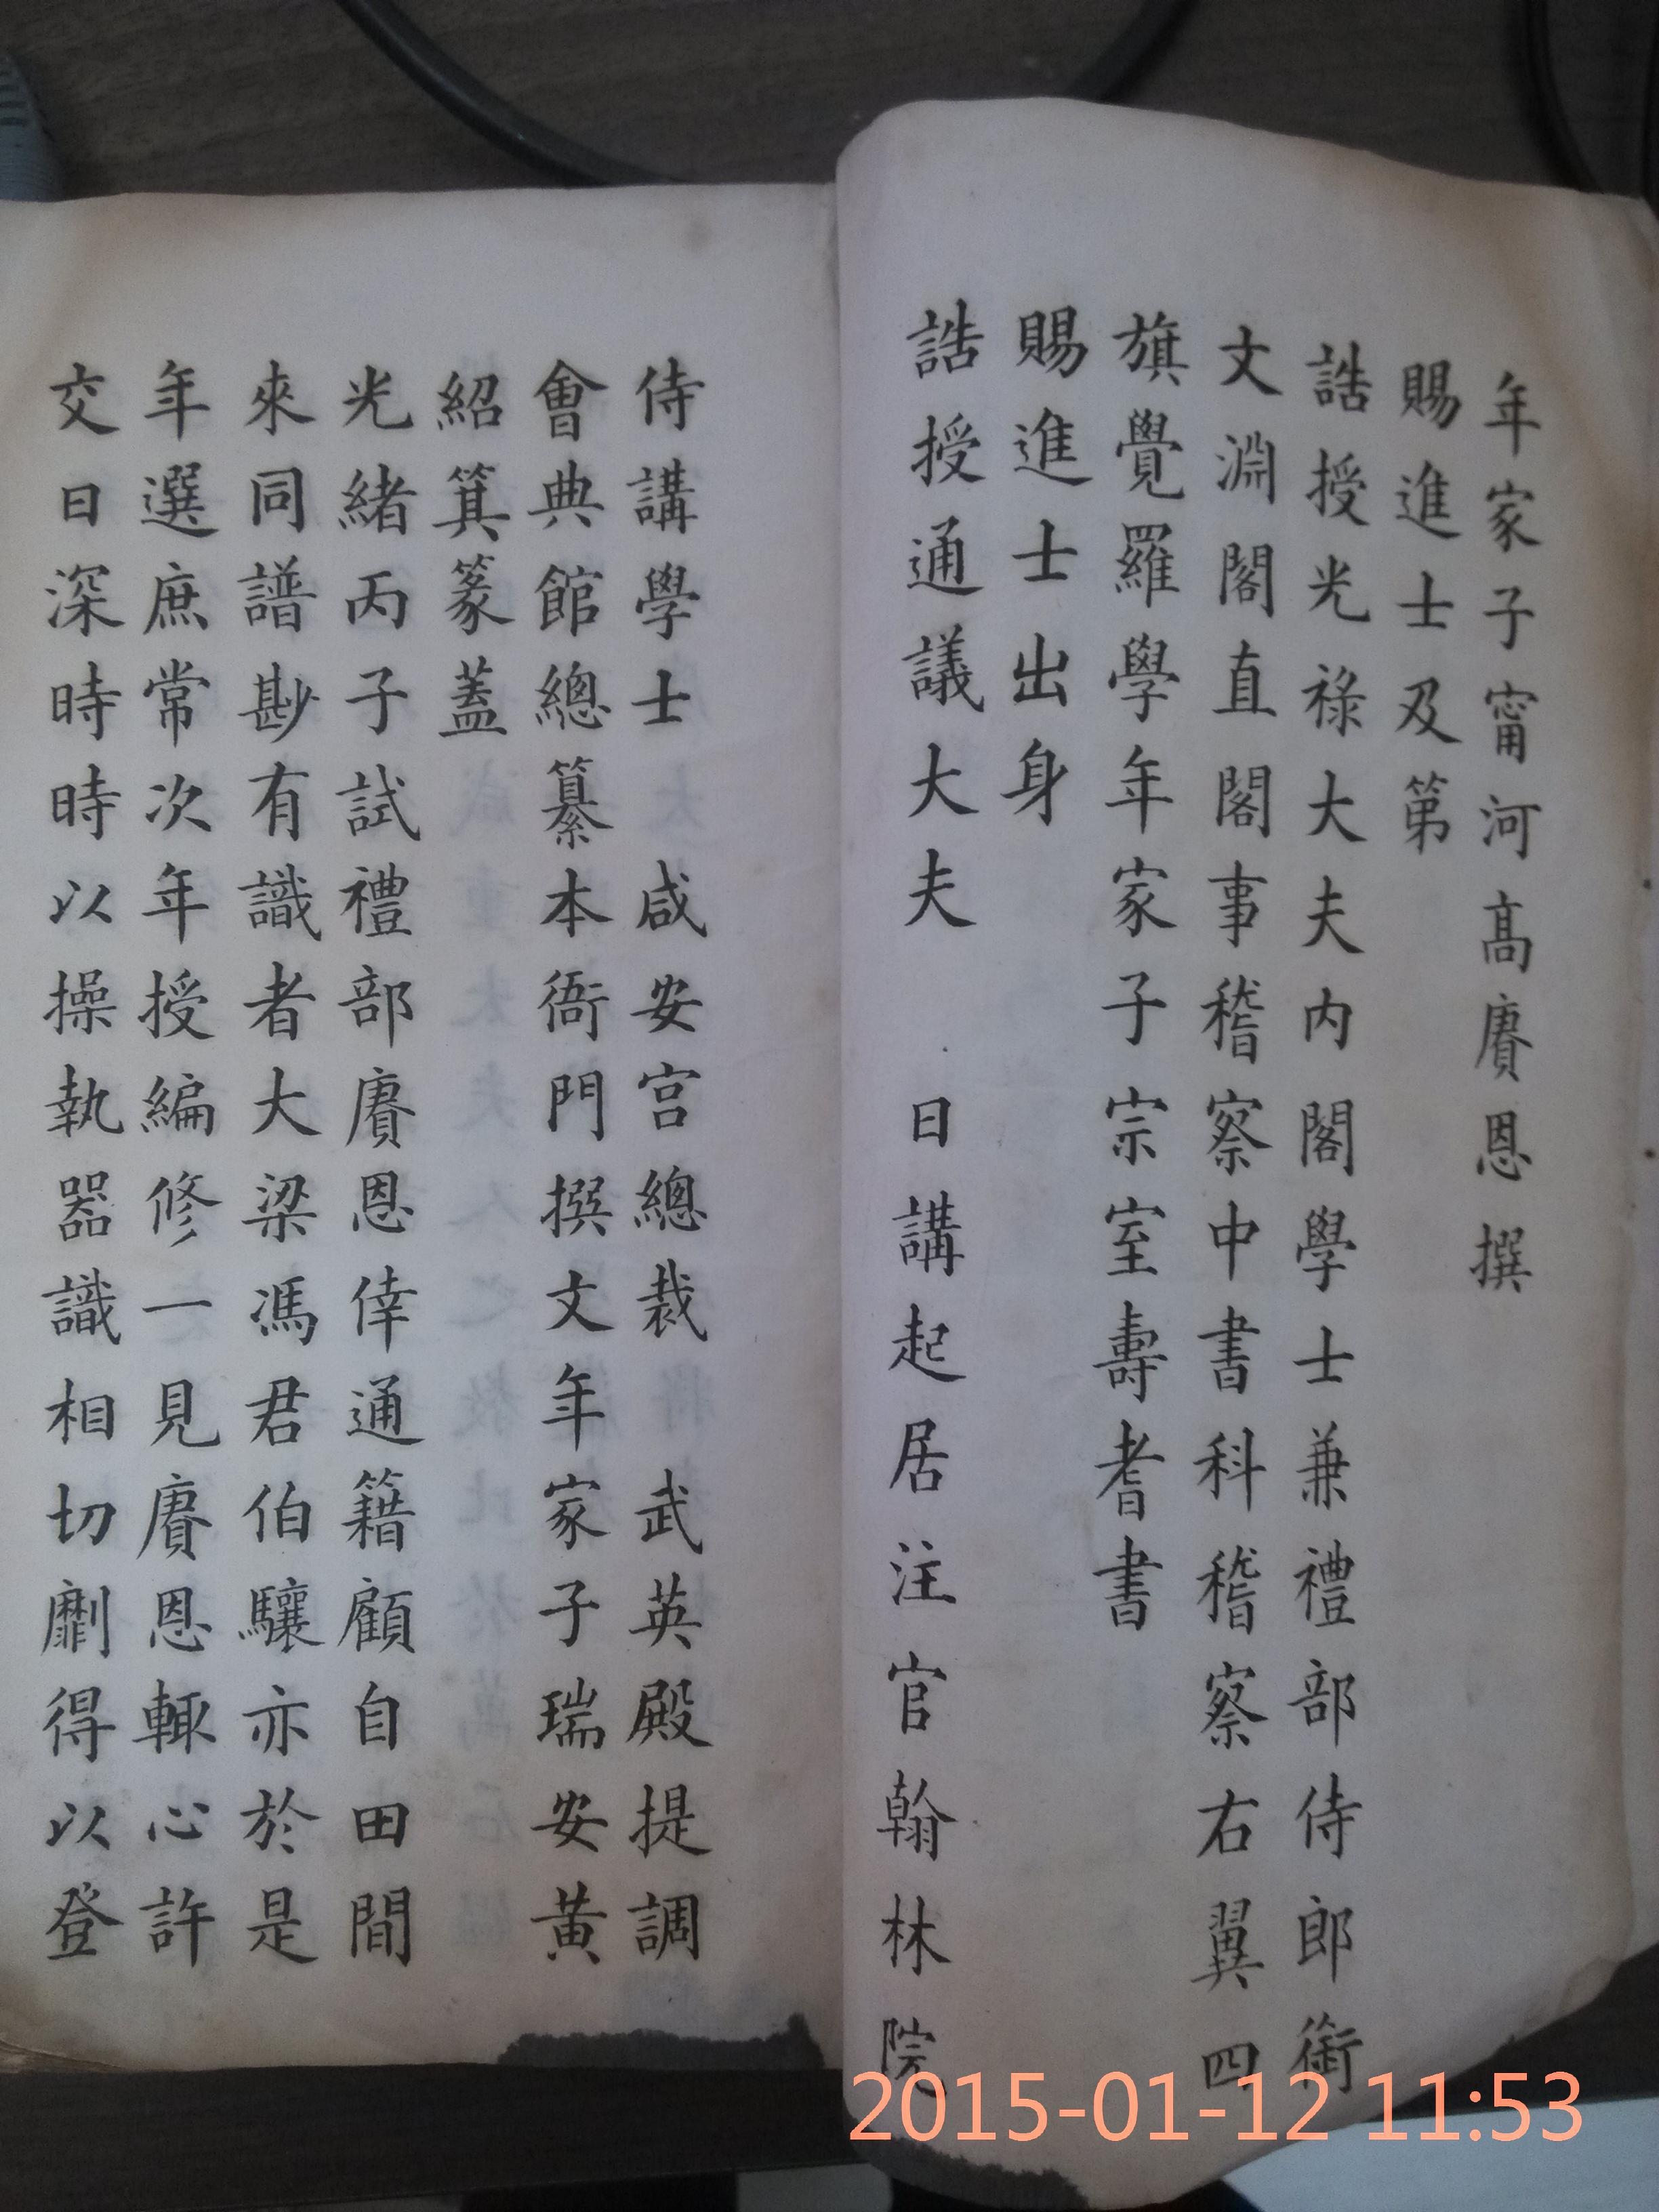 年家子甯河高賡恩撰
賜進士及第
誥授光祿大夫内閣學士兼禮部侍郎銜
文淵閣直閣事稽察中書科稽察右翼四
旗覺羅學年家子宗室壽耆書
賜進士出身
誥授通議大夫 日講起居注官翰林院
侍講學士 咸安宮總裁 武英殿提調
會典館總纂本衙門撰文年家子瑞安黃
紹箕篆蓋
光緒丙子試禮部賡恩倖通籍顧自田間
來同譜尠有識者大梁馮君伯驤亦於是
年選庶常次年授編修一見賡恩輒心許
交日深時時以操執器識相切劘得以登
2015-01-12 11:53